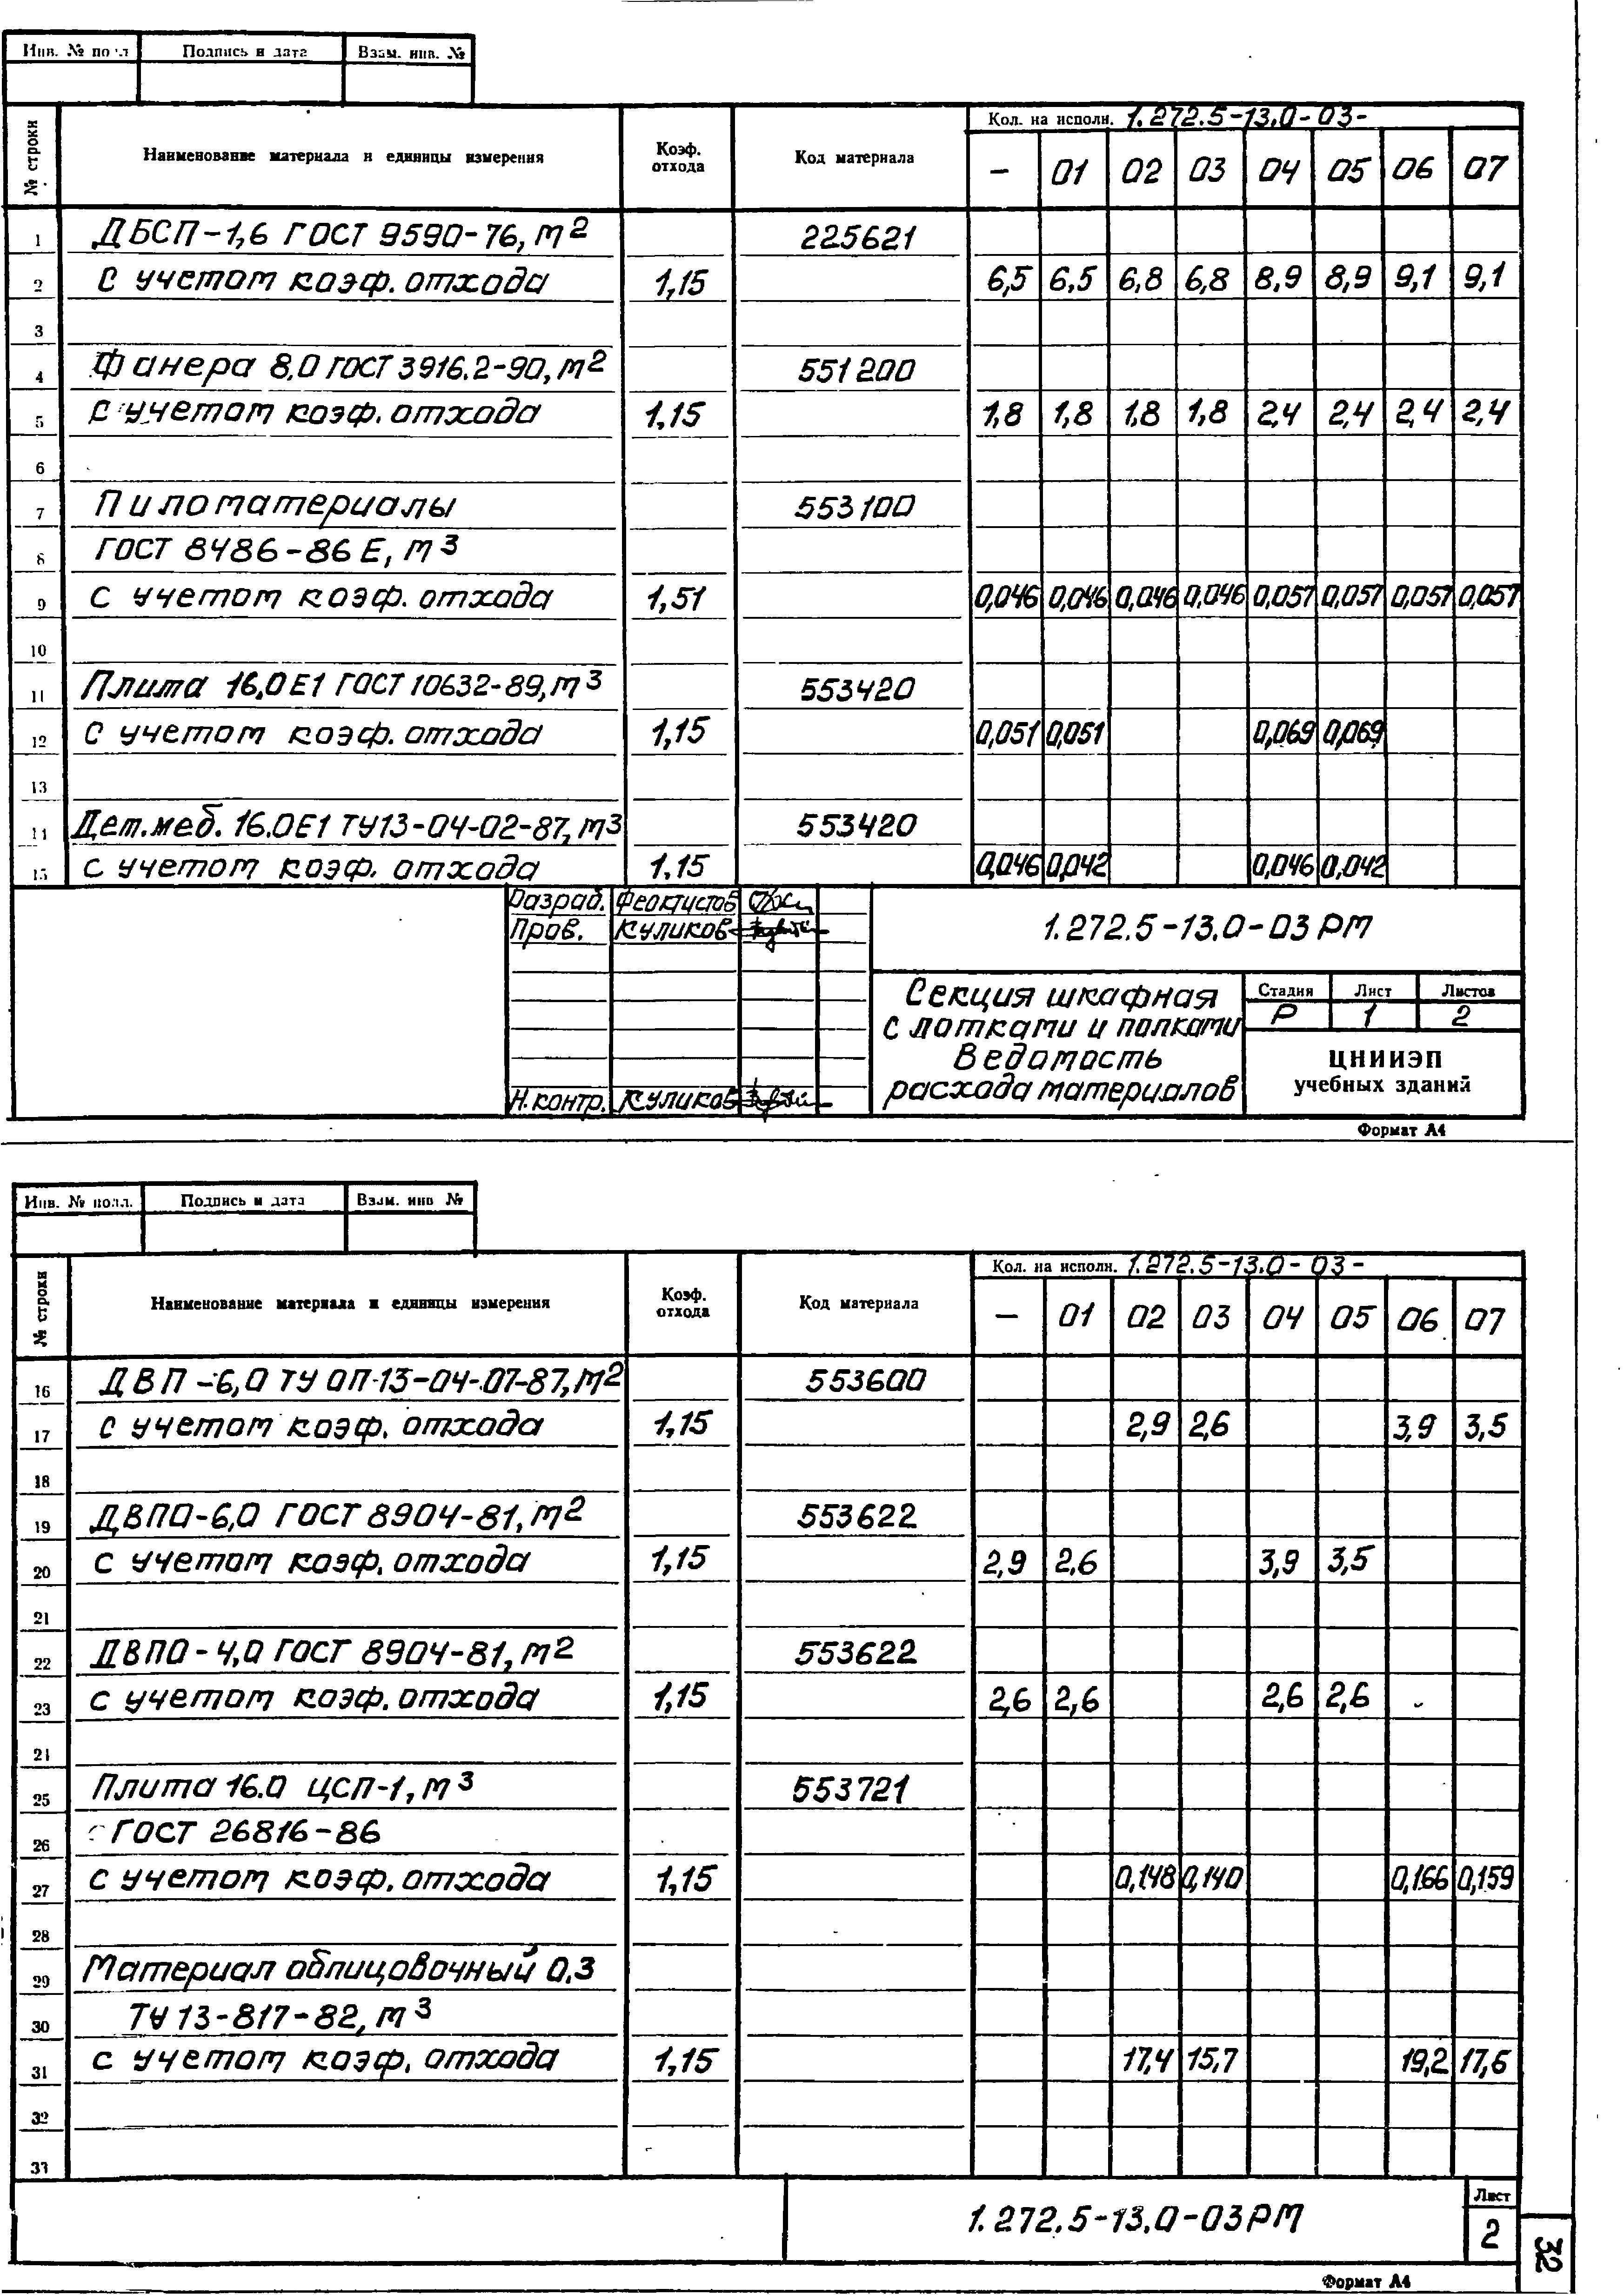 Инв. № подл Подпись и дата Взам. инв. №
№ строки Наименование материала и единицы измерения Коэф. отхода Код материала Кол. на исполн. 1.272.5-13.0-03-
— 01 02 03 04 05 06 07
1 ДБСП-1,6 ГОСТ 9590-76, м2 225621
2 с учетом коэф. отхода 1,15 6,5 6,5 6,8 6,8 8,9 8,9 9,1 9,1
3
4 Фанера 8.0 ГОСТ 3916.2-90, м2 551200
5 с учетом коэф. отхода 1,15 1,8 1,8 1,8 1,8 2,4 2,4 2,4 2,4
6
7 Пиломатериалы 553100
8 ГОСТ 8486-86 Е, м3
9 с учетом коэф. отхода 1,51 0,046 0,046 0,046 0,046 0,057 0,057 0,057 0,057
10
11 Плита 16.0 Е1 ГОСТ 10632-89, м3 553420
12 с учетом коэф. отхода 1,15 0,051 0,051 0,069 0,069
13
14 Дет. меб. 16.0Е1 ТУ13-04-02-87, м3 553420
15 с учетом коэф. отхода 1.15 0,046 0,042 0,046 0,042
Разраб. Феоктистов
Пров. Куликов
Н. контр. Куликов
1.272.5-13.0-03 РМ
Секция шкафная
с лотками и полками
Ведомость
расхода материалов
Стадия Лист Листов
Р 1 2
ЦНИИЭП
учебных зданий
Формат А4
Инв. № подл. Подпись и дата Взам. инв №
№ строки Наименование материала и единицы измерения Коэф. отхода Код материала Кол. на исполн. 1.272.5-13.0-03-
— 01 02 03 04 05 06 07
16 ДВП-6,0 ТУ ОП-13-04-07-87, м2 553600
17 с учетом коэф. отхода 1,15 2,9 2,6 3,9 3,5
18
19 ДВПО-6,0 ГОСТ 8904-81, м2 553622
20 с учетом коэф. отхода 1,15 2,9 2,6 3,9 3,5
21
22 ДВПО-4,0 ГОСТ 8904-81, м2 553622
23 с учетом коэф. отхода 1,15 2,6 2,6 2,6 2,6
21
25 Плита 16.0 ЦСП-1, м3 553721
26 ГОСТ 26816-86
27 с учетом коэф. отхода 1,15 0,148 0,140 0,166 0,159
28
29 Материал облицовочный 0.3
30 ТУ 13-817-82, м3
31 с учетом коэф. отхода 1,15 17,4 15,7 19,2 17,6
32
33
1.272.5-13.0-03РМ
Лист
2
32
Формат А4